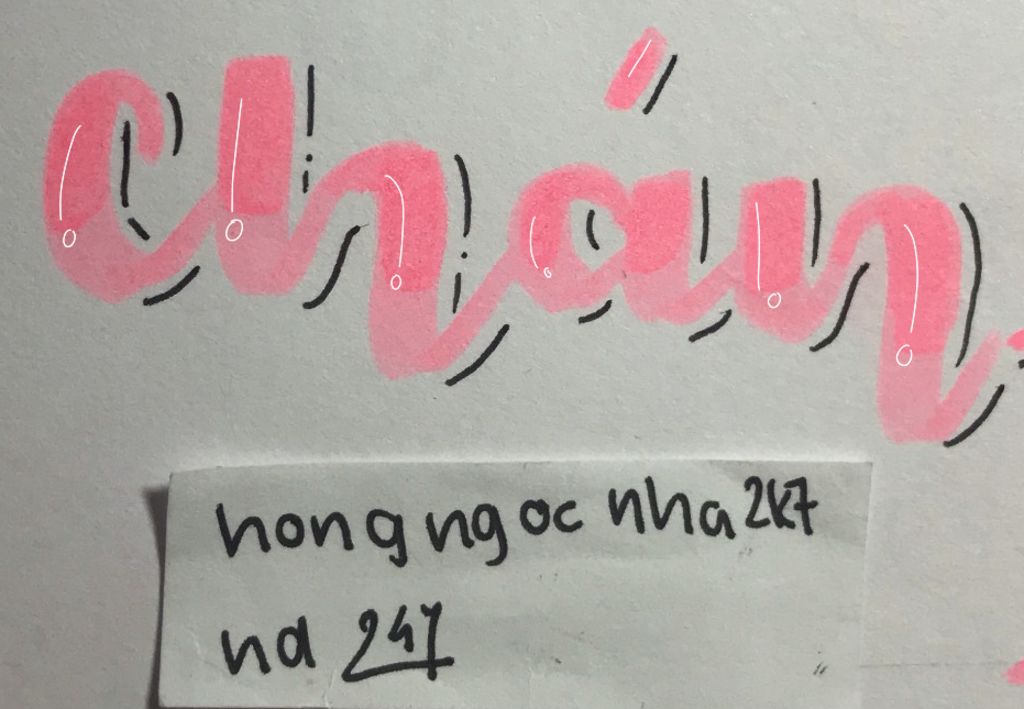 Chán
hong ngoc nha2k7
nd 247